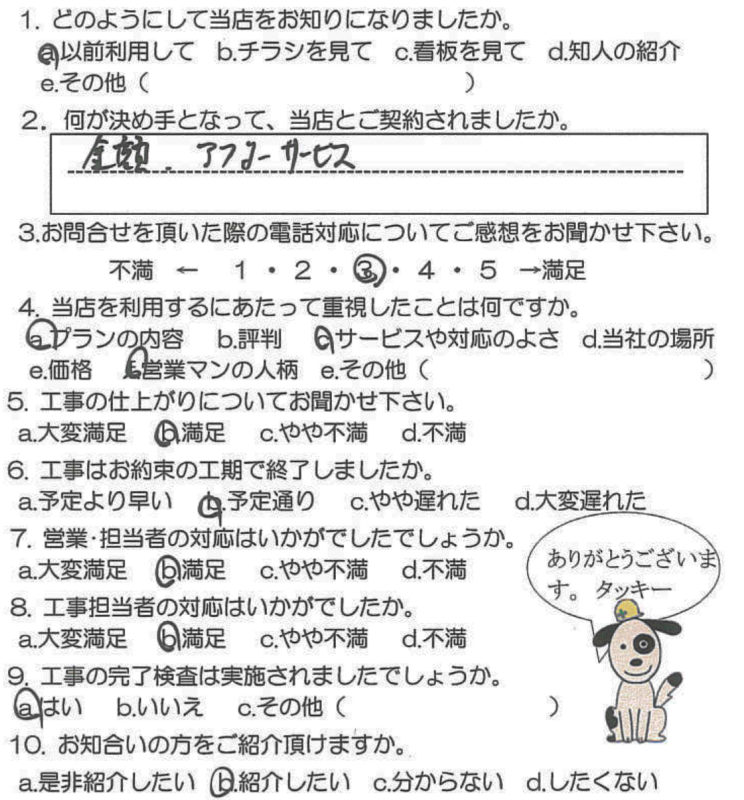 1. どのようにして当店をお知りになりましたか。
a.以前利用して b.チラシを見て c.看板を見て d.知人の紹介
e.その他（ ）
2. 何が決め手となって、当店とご契約されましたか。
金額．アフターサービス
3.お問合せを頂いた際の電話対応についてご感想をお聞かせ下さい。
不満 ← 1・2・3・4・5 →満足
4. 当店を利用するにあたって重視したことは何ですか。
a.プランの内容 b.評判 c.サービスや対応のよさ d.当社の場所
e.価格 f.営業マンの人柄 e.その他（ ）
5. 工事の仕上がりについてお聞かせ下さい。
a.大変満足 b.満足 c.やや不満 d.不満
6. 工事はお約束の工期で終了しましたか。
a.予定より早い b.予定通り c.やや遅れた d.大変遅れた
7. 営業・担当者の対応はいかがでしたでしょうか。
a.大変満足 b.満足 c.やや不満 d.不満
ありがとうございま
す。 タッキー
8. 工事担当者の対応はいかがでしたか。
a.大変満足 b.満足 c.やや不満 d.不満
9. 工事の完了検査は実施されましたでしょうか。
a.はい b.いいえ c.その他（ ）
10. お知合いの方をご紹介頂けますか。
a.是非紹介したい b.紹介したい c.分からない d.したくない